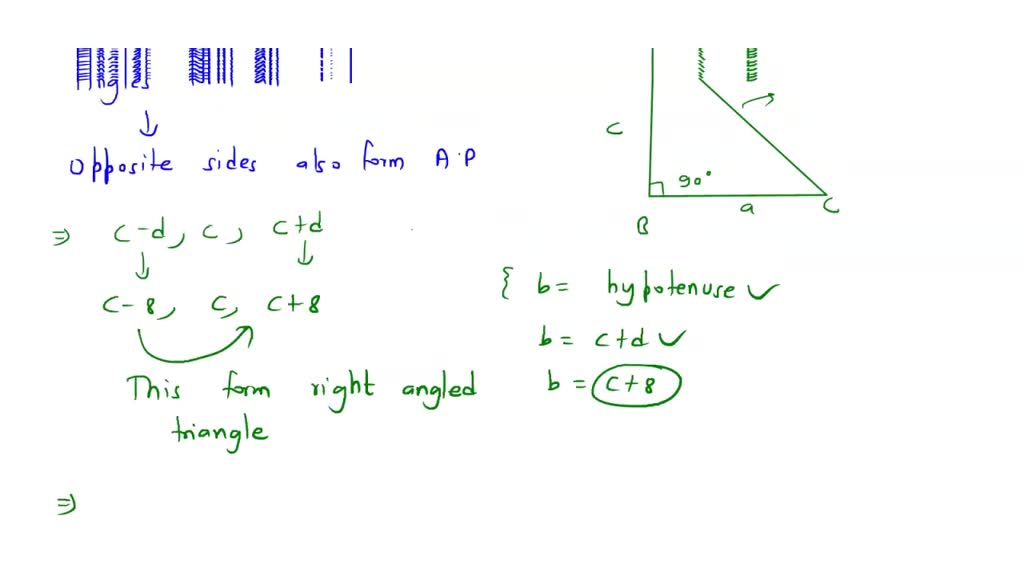 Angles
↓
Opposite sides also form A.P
⇒ c-d, c, c+d
↓ ↓
c-8, c, c+8
This form right angled
triangle
⇒
c
90°
a
C
B
{ b = hypotenuse ✓
b = c+d ✓
b = c+8